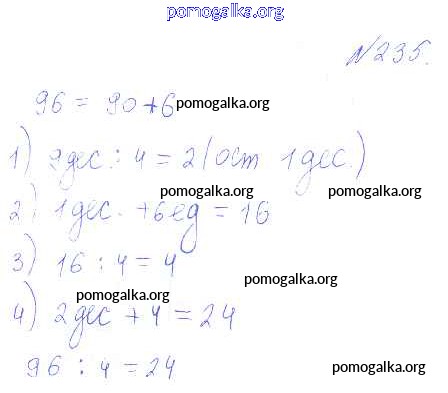 pomogalka.org
№235.
96 = 90 + 6 pomogalka.org
1) 9дес : 4 = 2 (ост 1дес.)
pomogalka.org pomogalka.org
2) 1дес. + 6ед = 16
3) 16 : 4 = 4
pomogalka.org
pomogalka.org
4) 2дес + 4 = 24
96 : 4 = 24 pomogalka.org